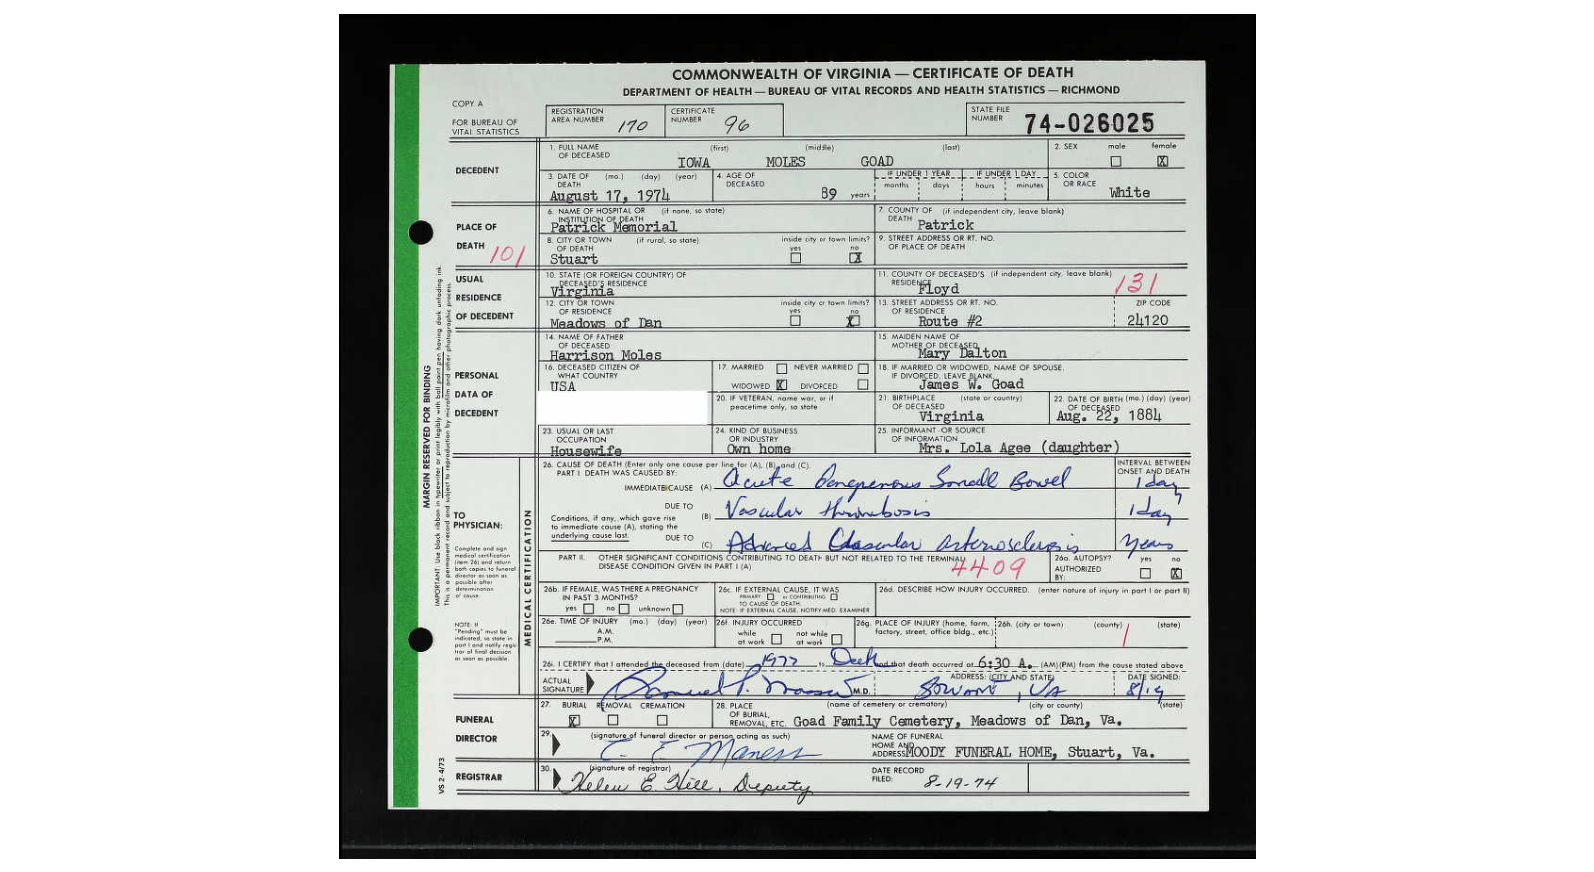 COMMONWEALTH OF VIRGINIA — CERTIFICATE OF DEATH
DEPARTMENT OF HEALTH — BUREAU OF VITAL RECORDS AND HEALTH STATISTICS — RICHMOND
COPY A
FOR BUREAU OF VITAL STATISTICS
REGISTRATION AREA NUMBER 170
CERTIFICATE NUMBER 96
STATE FILE NUMBER 74-026025
DECEDENT
1. FULL NAME OF DECEASED (first) (middle) (last)
IOWA MOLES GOAD
2. SEX male female X
3. DATE OF DEATH (mo.) (day) (year)
August 17, 1974
4. AGE OF DECEASED
89 years
IF UNDER 1 YEAR months days
IF UNDER 1 DAY hours minutes
5. COLOR OR RACE
White
PLACE OF DEATH
101
6. NAME OF HOSPITAL OR INSTITUTION OF DEATH (if none, so state)
Patrick Memorial
7. COUNTY OF DEATH (if independent city, leave blank)
Patrick
8. CITY OR TOWN OF DEATH (if rural, so state)
Stuart
inside city or town limits? yes no X
9. STREET ADDRESS OR RT. NO. OF PLACE OF DEATH
USUAL RESIDENCE OF DECEDENT
10. STATE (OR FOREIGN COUNTRY) OF DECEASED'S RESIDENCE
Virginia
11. COUNTY OF DECEASED'S RESIDENCE (if independent city, leave blank)
Floyd
131
12. CITY OR TOWN OF RESIDENCE
Meadows of Dan
inside city or town limits? yes no X
13. STREET ADDRESS OR RT. NO. OF RESIDENCE
Route #2
ZIP CODE
24120
PERSONAL DATA OF DECEDENT
14. NAME OF FATHER OF DECEASED
Harrison Moles
15. MAIDEN NAME OF MOTHER OF DECEASED
Mary Dalton
16. DECEASED CITIZEN OF WHAT COUNTRY
USA
17. MARRIED NEVER MARRIED
WIDOWED X DIVORCED
18. IF MARRIED OR WIDOWED, NAME OF SPOUSE. IF DIVORCED, LEAVE BLANK
James W. Goad
20. IF VETERAN, name war, or if peacetime only, so state
21. BIRTHPLACE OF DECEASED (state or country)
Virginia
22. DATE OF BIRTH (mo.) (day) (year) OF DECEASED
Aug. 22, 1884
23. USUAL OR LAST OCCUPATION
Housewife
24. KIND OF BUSINESS OR INDUSTRY
Own home
25. INFORMANT OR SOURCE OF INFORMATION
Mrs. Lola Agee (daughter)
MARGIN RESERVED FOR BINDING
IMPORTANT: Use black ribbon in typewriter or print legibly with ball point pen having dark unfading ink.
This is a permanent record and subject to reproduction by microfilm and other photographic process.
TO PHYSICIAN:
Complete and sign medical certification (item 26) and return both copies to funeral director as soon as possible after determination of cause.
NOTE: If "Pending" must be indicated, so state in part I and notify registrar of final decision as soon as possible.
MEDICAL CERTIFICATION
26. CAUSE OF DEATH (Enter only one cause per line for (A), (B), and (C).
PART I. DEATH WAS CAUSED BY:
INTERVAL BETWEEN ONSET AND DEATH
IMMEDIATE CAUSE (A) Acute Gangrenous Small Bowel 1 day
DUE TO (B) Vascular thrombosis 1 day
Conditions, if any, which gave rise to immediate cause (A), stating the underlying cause last.
DUE TO (C) Advanced Vascular arteriosclerosis years
PART II. OTHER SIGNIFICANT CONDITIONS CONTRIBUTING TO DEATH BUT NOT RELATED TO THE TERMINAL DISEASE CONDITION GIVEN IN PART I (A)
4409
26a. AUTOPSY? AUTHORIZED BY: yes no X
26b. IF FEMALE, WAS THERE A PREGNANCY IN PAST 3 MONTHS?
yes no unknown
26c. IF EXTERNAL CAUSE, IT WAS
PRIMARY or CONTRIBUTING TO CAUSE OF DEATH
NOTE: IF EXTERNAL CAUSE, NOTIFY MED. EXAMINER
26d. DESCRIBE HOW INJURY OCCURRED. (enter nature of injury in part I or part II)
26e. TIME OF INJURY (mo.) (day) (year)
A.M.
P.M.
26f. INJURY OCCURRED
while at work not while at work
26g. PLACE OF INJURY (home, farm, factory, street, office bldg., etc.)
26h. (city or town) (county) (state)
26i. I CERTIFY that I attended the deceased from (date) to Death and that death occurred at 6:30 A. (AM)(PM) from the cause stated above
ACTUAL SIGNATURE M.D.
ADDRESS: (CITY AND STATE)
, Va
DATE SIGNED:
8/19
FUNERAL DIRECTOR
27. BURIAL X REMOVAL CREMATION
28. PLACE OF BURIAL, REMOVAL, ETC. (name of cemetery or crematory) (city or county) (state)
Goad Family Cemetery, Meadows of Dan, Va.
29. (signature of funeral director or person acting as such)
C. E. Maness
NAME OF FUNERAL HOME AND ADDRESS
MOODY FUNERAL HOME, Stuart, Va.
REGISTRAR
30. (signature of registrar)
Helen E. Hill, Deputy
DATE RECORD FILED:
8-19-74
VS 2-4/73